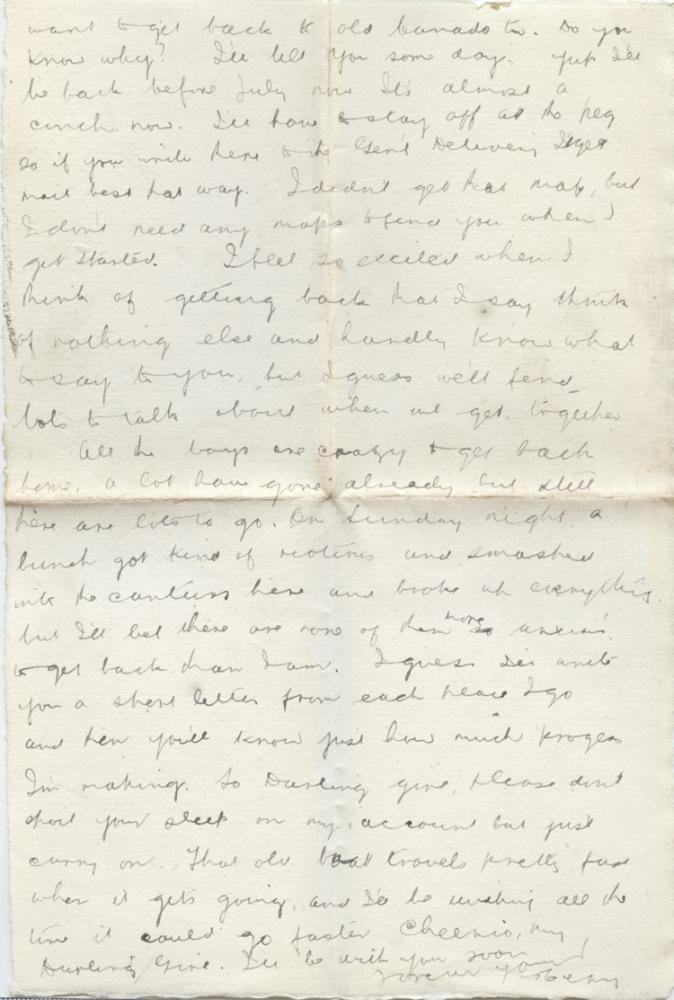 want to get back to old Canada too. Do you
know why? I'll tell you some day. Yup I'll
be back before July now. It's almost a
cinch now. I'll have to stay off at the Peg
so if you write there to the Gen'l Delivery I'll get
mail best that way. I didn't get that map, but
I don't need any maps to find you when I
get started. I feel so excited when I
think of getting back that I say think
of nothing else and hardly know what
to say to you, but I guess we'll find
lots to talk about when we get together
All the boys are crazy to get back
home, a lot have gone already but still
there are lots to go. On Sunday night, a
bunch got kind of riotous and smashed
into the canteens here and broke up everything.
but I'll bet there are none of them more anxious
to get back than I am. I guess I'll write
you a short letter from each place I go
and then you'll know just how much progess
I'm making. So Darling girl, please don't
spoil your sleep on my account but just
carry on. That old boat travels pretty fast
when it gets going, and I'll be wishing all the
time it could go faster. Cheerio, my
Darling Girl. I'll be with you soon
forever yours